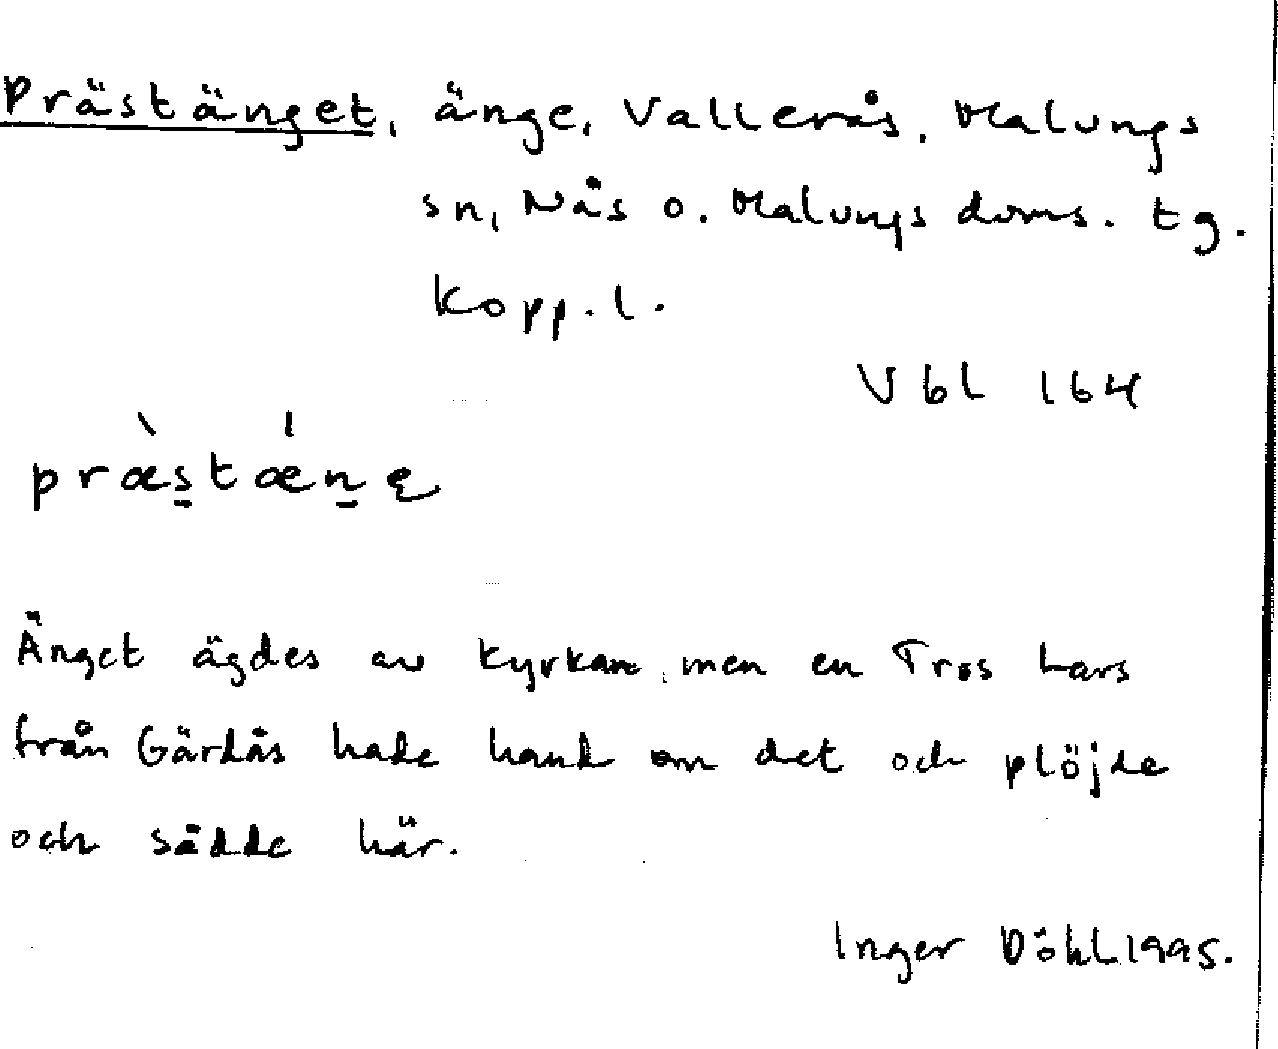 Prästänget, änge, Vallerås, Malungs
sn, Nås o. Malungs doms. tg.
Kopp. l.
Vbl 164
præ̀s̱tǽṉę
Änget ägdes av kyrkan, men en Tros Lars
från Gärdås hade hand om det och plöjde
och sådde här.
Inger Döhl 1995.